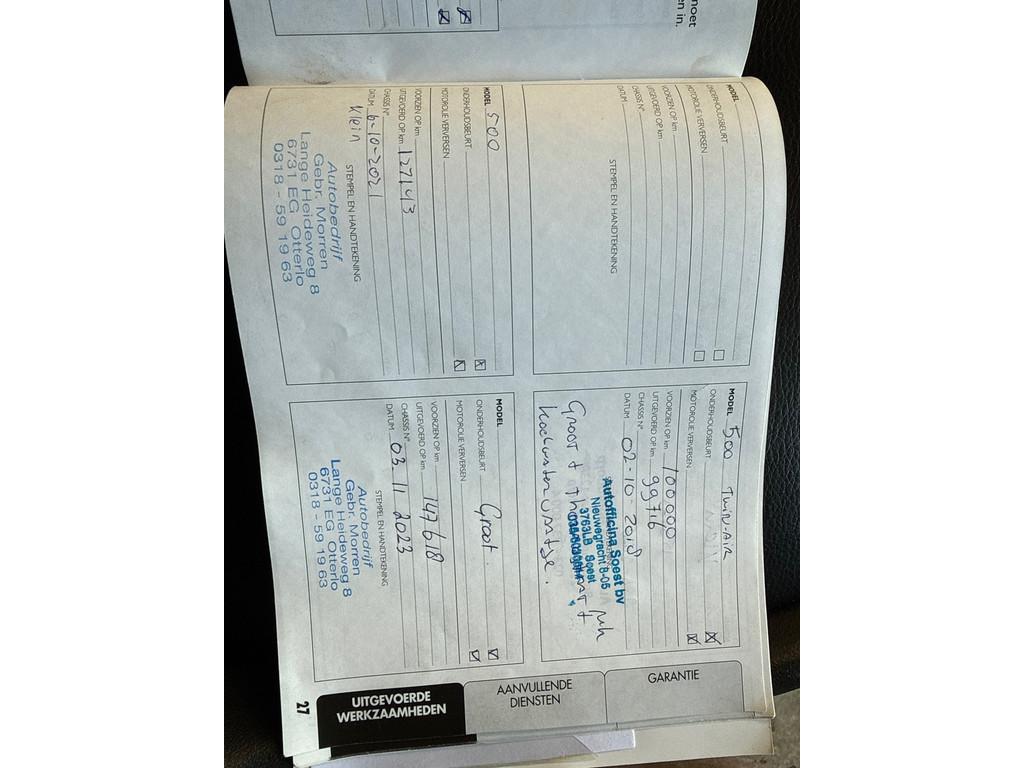 noet
en in.
MODEL
ONDERHOUDSBEURT
MOTOROLIE VERVERSEN
VOORZIEN OP km
UITGEVOERD OP km
CHASSIS N°
DATUM
STEMPEL EN HANDTEKENING
MODEL 500 Twin-AIR
ONDERHOUDSBEURT
MOTOROLIE VERVERSEN
VOORZIEN OP km 100000
UITGEVOERD OP km 99716
CHASSIS N°
DATUM 02-10-2018
Autofficina Soest bv
Nieuwegracht 8-05
3763LB Soest
Groot +
MODEL 500
ONDERHOUDSBEURT
MOTOROLIE VERVERSEN
VOORZIEN OP km
UITGEVOERD OP km 127143
CHASSIS N°
DATUM 6-10-2021
Klein
STEMPEL EN HANDTEKENING
Autobedrijf
Gebr. Morren
Lange Heideweg 8
6731 EG Otterlo
0318 - 59 19 63
MODEL
ONDERHOUDSBEURT Groot.
MOTOROLIE VERVERSEN
VOORZIEN OP km
UITGEVOERD OP km 147618
CHASSIS N°
DATUM 03. 11 2023
STEMPEL EN HANDTEKENING
Autobedrijf
Gebr. Morren
Lange Heideweg 8
6731 EG Otterlo
0318 - 59 19 63
GARANTIE
AANVULLENDE
DIENSTEN
UITGEVOERDE
WERKZAAMHEDEN
27